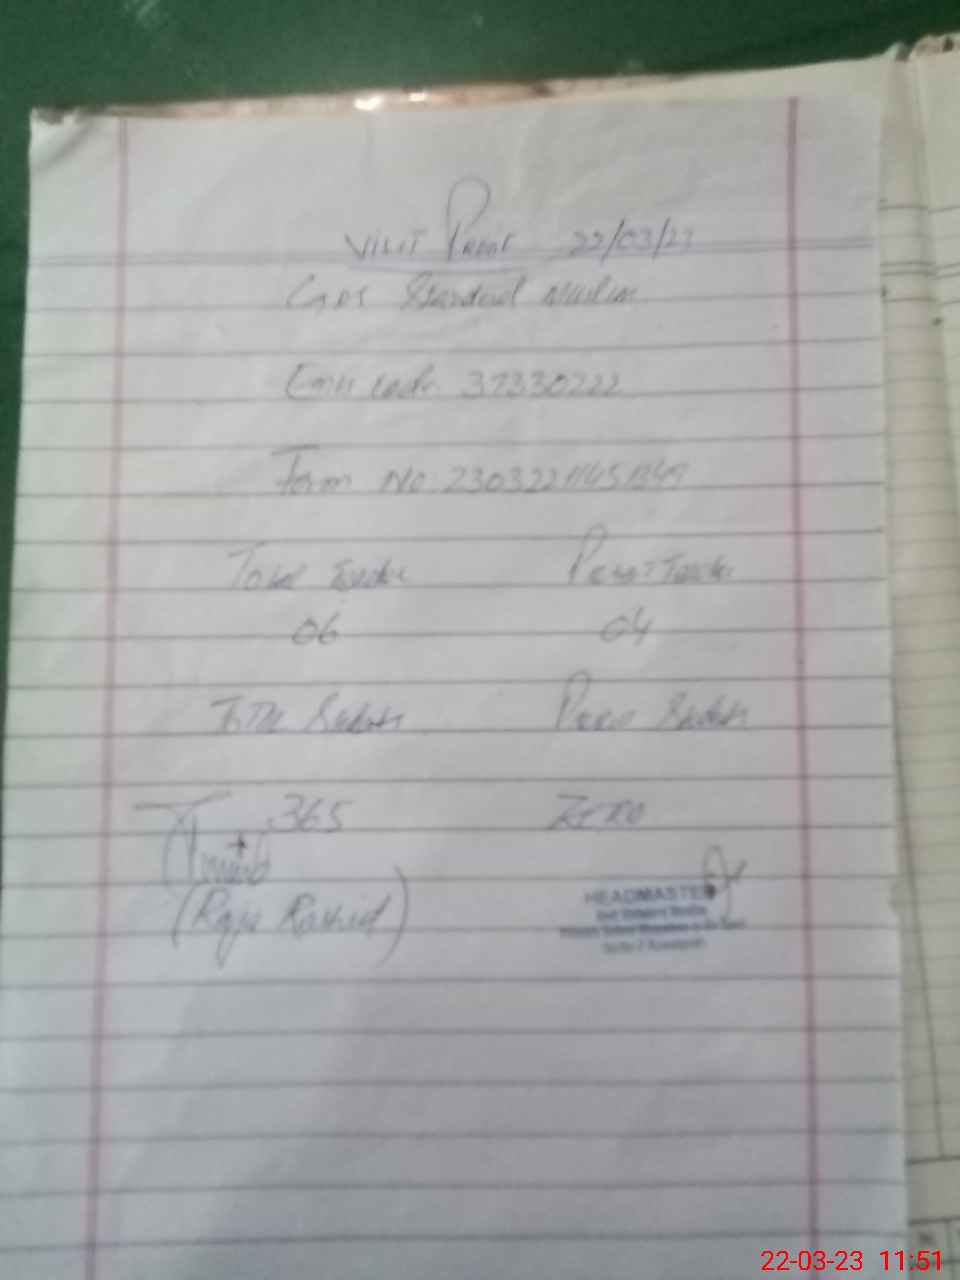 Visit Proof 22/03/23
GPS Standard Muslim
Emis code 37330222
Form No 23032211451349
Total Teacher Present Teacher
06 04
Total Students Present Students
365 Zero
(Raja Rashid)
HEADMASTER
22-03-23 11:51